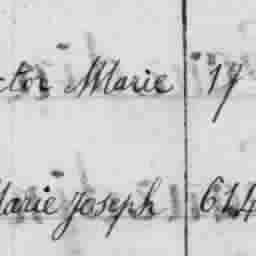 ctor Marie 17
Marie Joseph 614